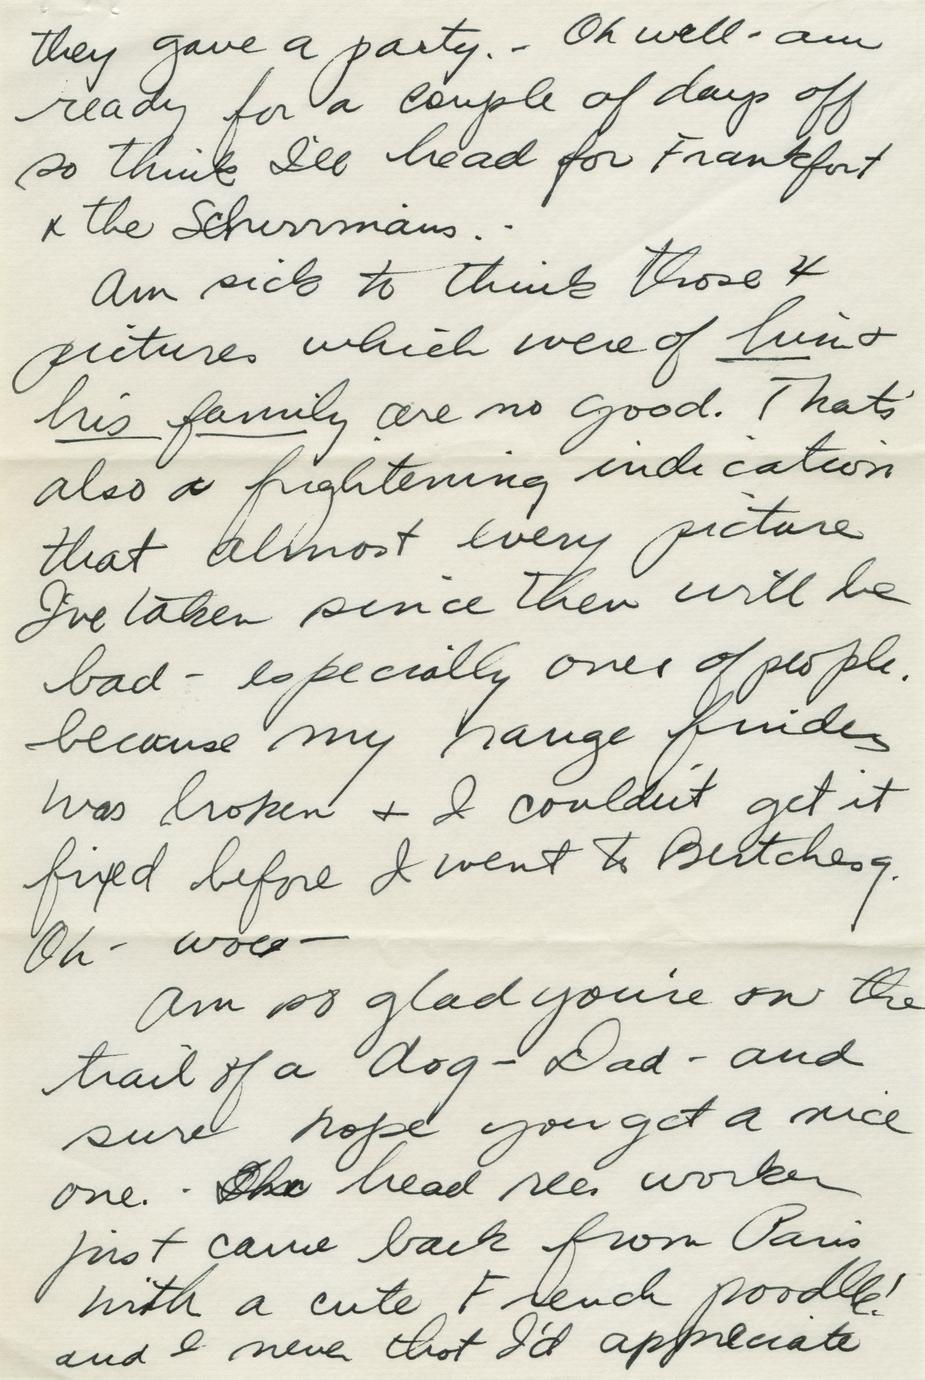 they gave a party. - Oh well - am
ready for a couple of days off
so think I'll head for Frankfort
& the Schurrmans. -
Am sick to think those 4
pictures which were of him &
his family are no good. Thats'
also a frightening indication
that almost every picture
I've taken since then will be
bad - especially ones of people.
because my range finder
was broken & I couldn't get it
fixed before I went to Bertchesg.
Oh - woe -
Am so glad you're on the
trail of a dog - Dad - and
sure hope you get a nice
one. - The head rec. worker
just came back from Paris
with a cute French poodle!
and I never that I'd appreciate